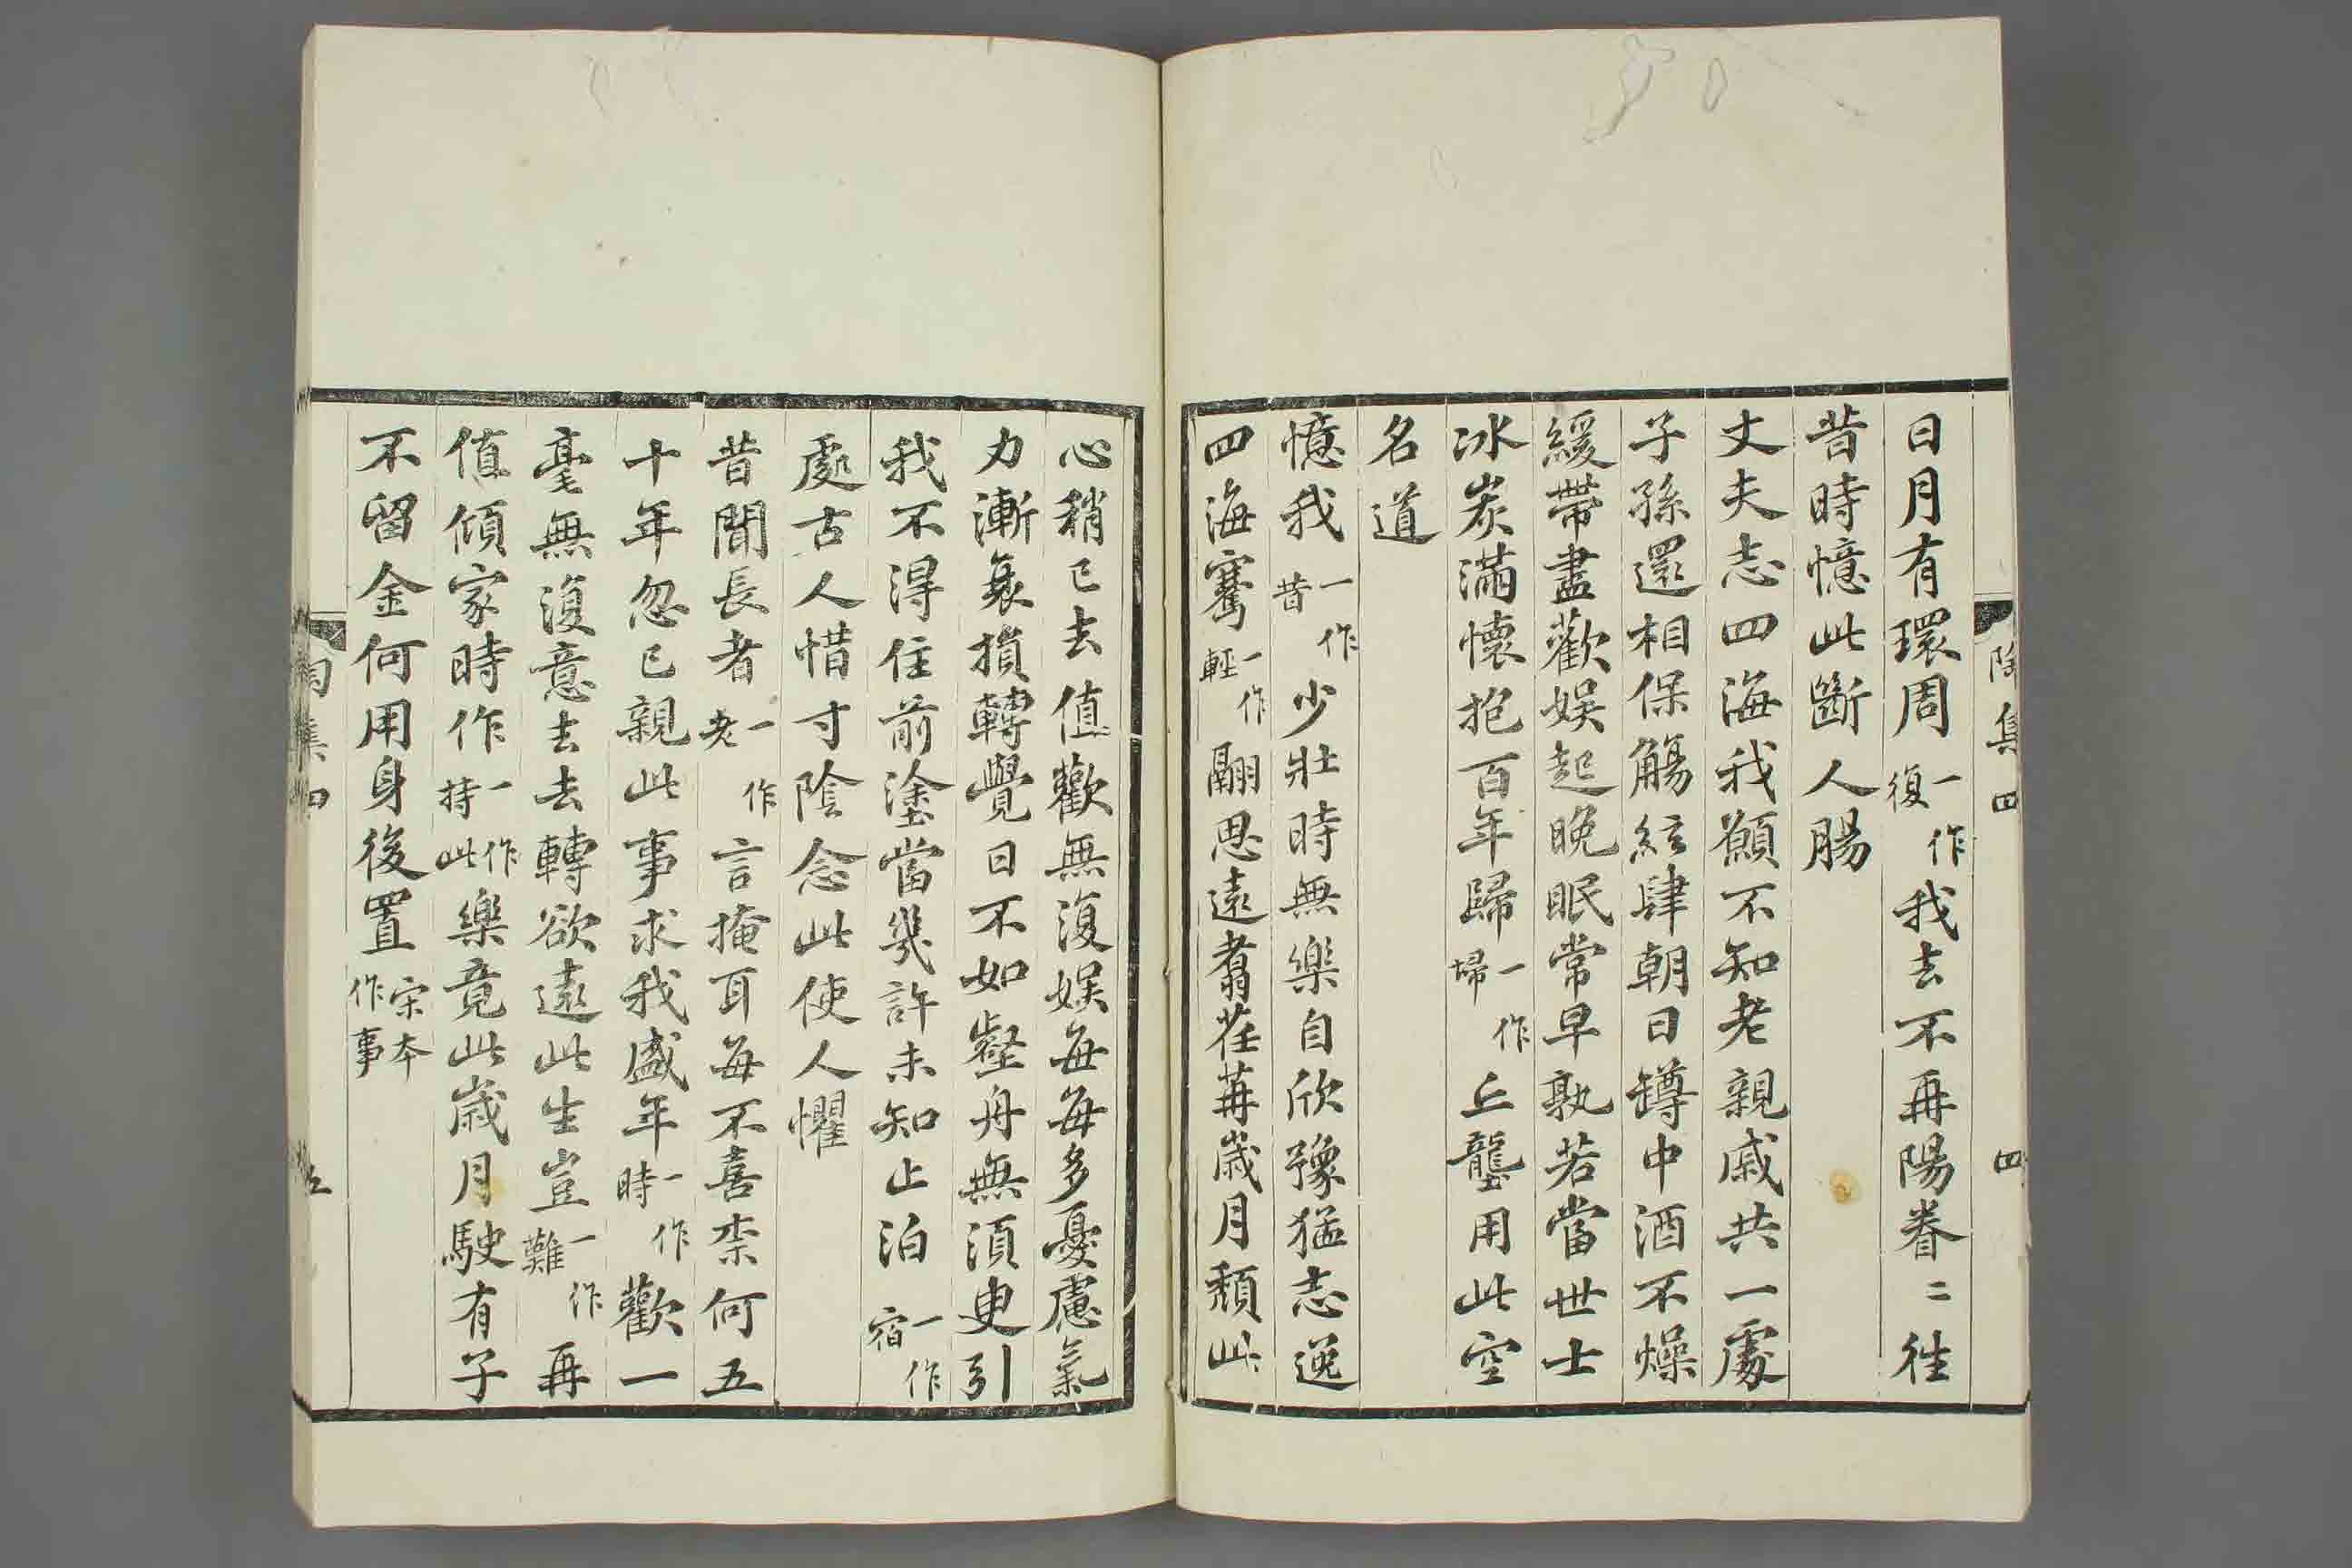 陶集四 四
日月有環周一作復我去不再陽眷〻往
昔時憶此斷人腸
丈夫志四海我願不知老親戚共一處
子孫還相保觴絃肆朝日罇中酒不燥
緩帶盡歡娛起晚眠常早孰若當世士
冰炭滿懷抱百年歸一作埽丘壟用此空
名道
憶我一作昔少壯時無樂自欣豫猛志逸
四海騫一作輕翮思遠翥荏苒歲月頹此
心稍已去值歡無復娛每每多憂慮氣
力漸衰損轉覺日不如壑舟無須臾引
我不得住前塗當幾許未知止泊一作宿
處古人惜寸陰念此使人懼
昔聞長者一作老言掩耳每不喜柰何五
十年忽已親此事求我盛年一作時歡一
毫無復意去去轉欲遠此生豈一作難再
值傾家時作一作持此樂竟此歲月駛有子
不留金何用身後置宋本作事
陶集四 五